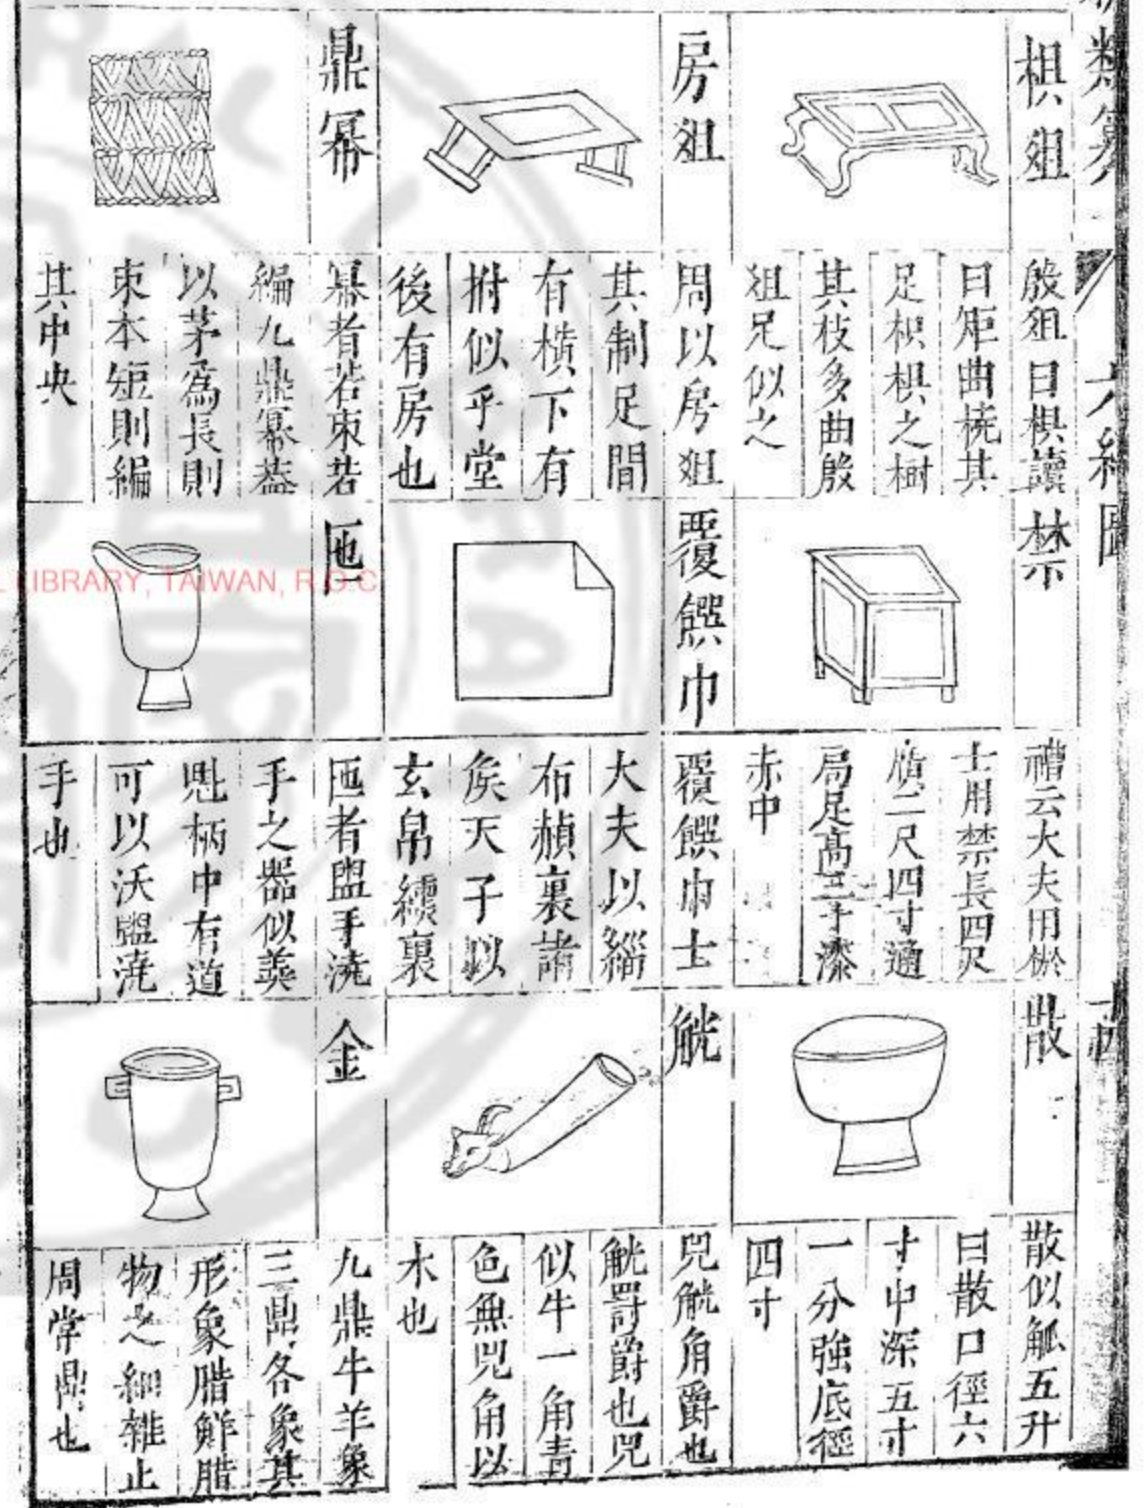 六經圖
棋俎
殷俎曰棋讀
曰矩曲橈其
足枳棋之樹
其枝多曲殷
俎足似之
房俎
周以房俎
其制足間
有橫下有
拊似乎堂
後有房也
鼎冪
冪者若束若
編九鼎冪蓋
以茅爲長則
束本短則編
其中央
禁
禮云大夫用棜
士用禁長四尺
廣二尺四寸通
局足高三寸漆
赤中
覆饌巾
覆饌巾士
大夫以緇
布赬裏諸
侯天子以
玄帛纁裏
匜
匜者盥手澆
手之器似羹
魁柄中有道
可以沃盥澆
手也
散
散似觚五升
曰散口徑六
寸中深五寸
一分強底徑
四寸
觥
兕觥角爵也
觥罸爵也兕
似牛一角青
色無兕角以
木也
金
九鼎牛羊象
三鼎各象其
形象腊鮮腊
物之細雜止
周常鼎也
L LIBRARY, TAIWAN, R.O.C